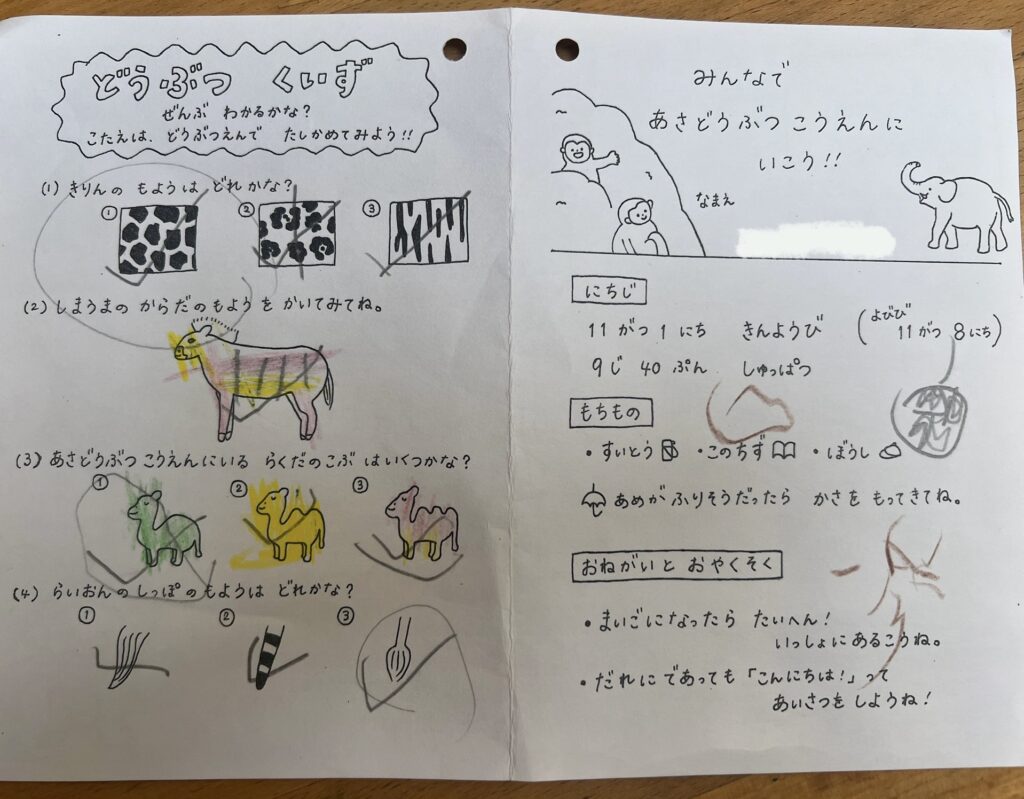 どうぶつ くいず
ぜんぶ わかるかな?
こたえは、どうぶつえんで たしかめてみよう!!
(1) きりんの もようは どれかな?
① ② ③
(2) しまうまの からだのもようを かいてみてね。
(3) あさどうぶつこうえんにいる らくだのこぶはいくつかな?
① ② ③
(4) らいおんのしっぽのもようは どれかな?
① ② ③
みんなで
あさどうぶつこうえんに
いこう!!
なまえ
にちじ
11がつ1にち きんようび (よびび 11がつ8にち)
9じ40ぷん しゅっぱつ
もちもの
・すいとう ・このちず ・ぼうし
あめがふりそうだったら かさをもってきてね。
おねがいと おやくそく
・まいごになったら たいへん!
いっしょにあるこうね。
・だれにであっても「こんにちは!」って
あいさつをしようね!